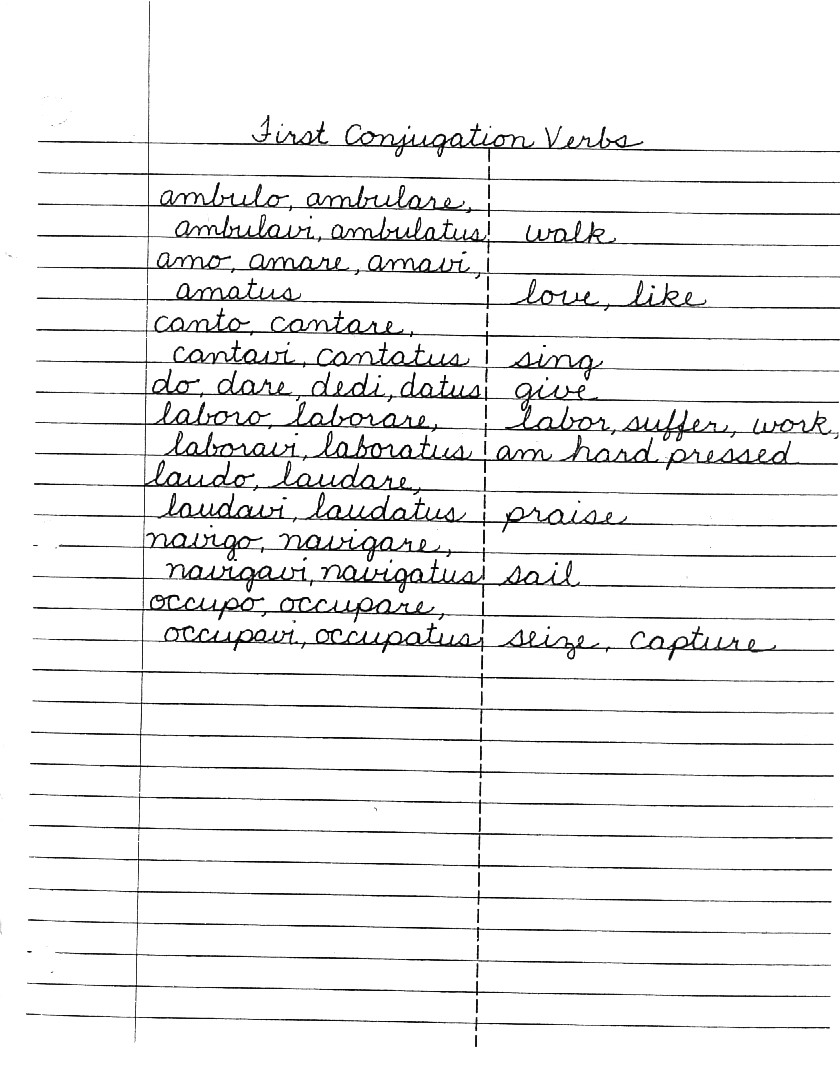 First Conjugation Verbs
ambulo, ambulare,
ambulavi, ambulatus walk
amo, amare, amavi,
amatus love, like
canto, cantare,
cantavi, cantatus sing
do, dare, dedi, datus give
laboro, laborare, labor, suffer, work,
laboravi, laboratus am hard pressed
laudo, laudare,
laudavi, laudatus praise
navigo, navigare,
navigavi, navigatus sail
occupo, occupare,
occupavi, occupatus seize, capture